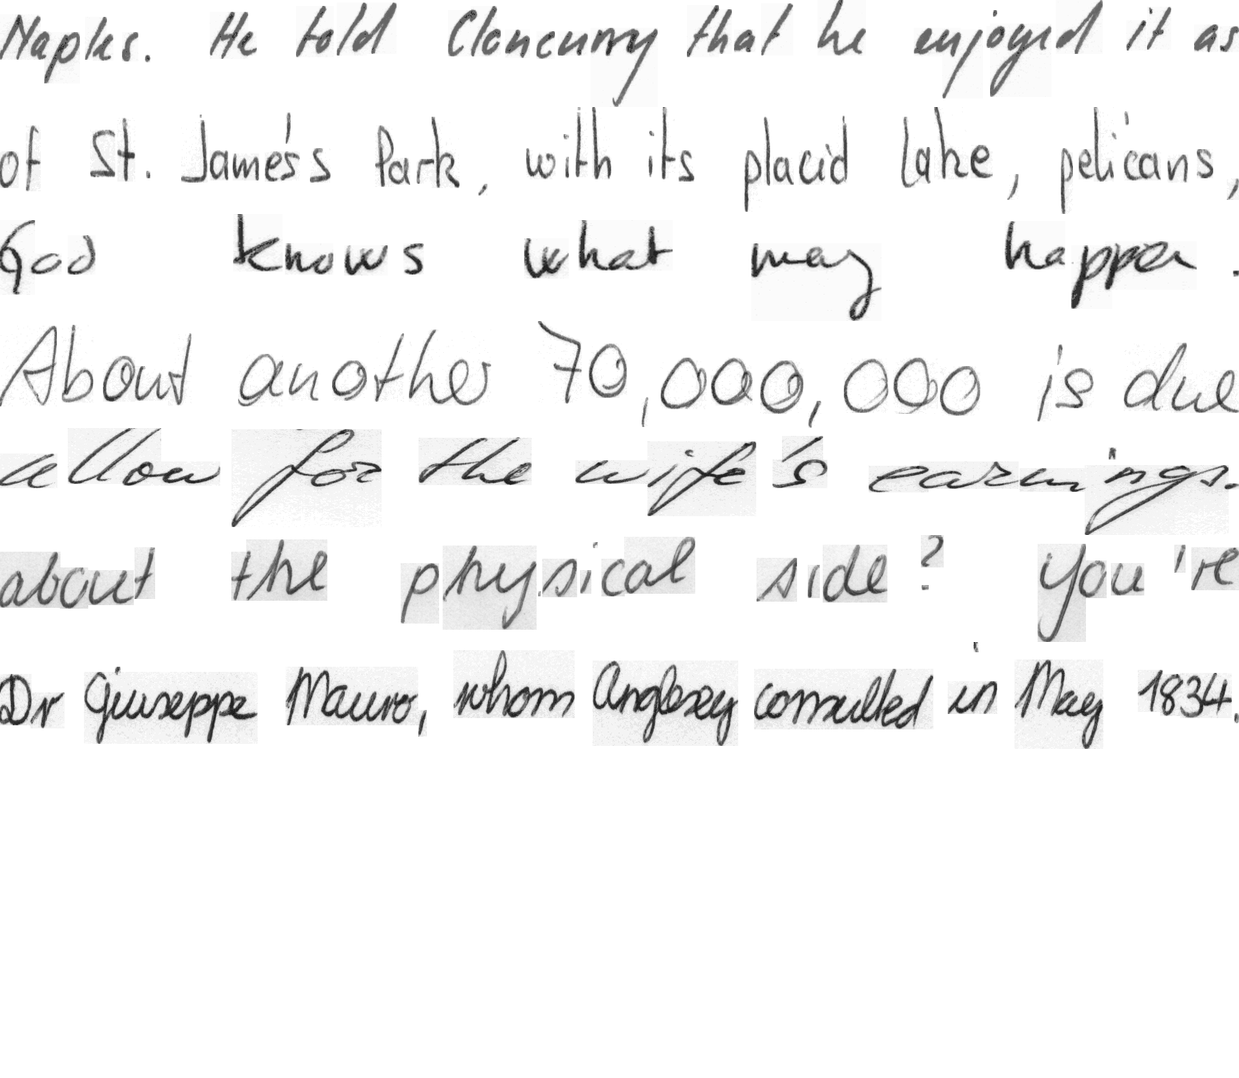 Naples. He told Cloncurry that he enjoyed it as
of St. James's Park, with its placid lake, pelicans,
God knows what may happen.
About another 70,000,000 is due
allow for the wife's earnings.
about the physical side? You're
Dr Giuseppe Mauro, whom Anglesey consulted in May 1834.